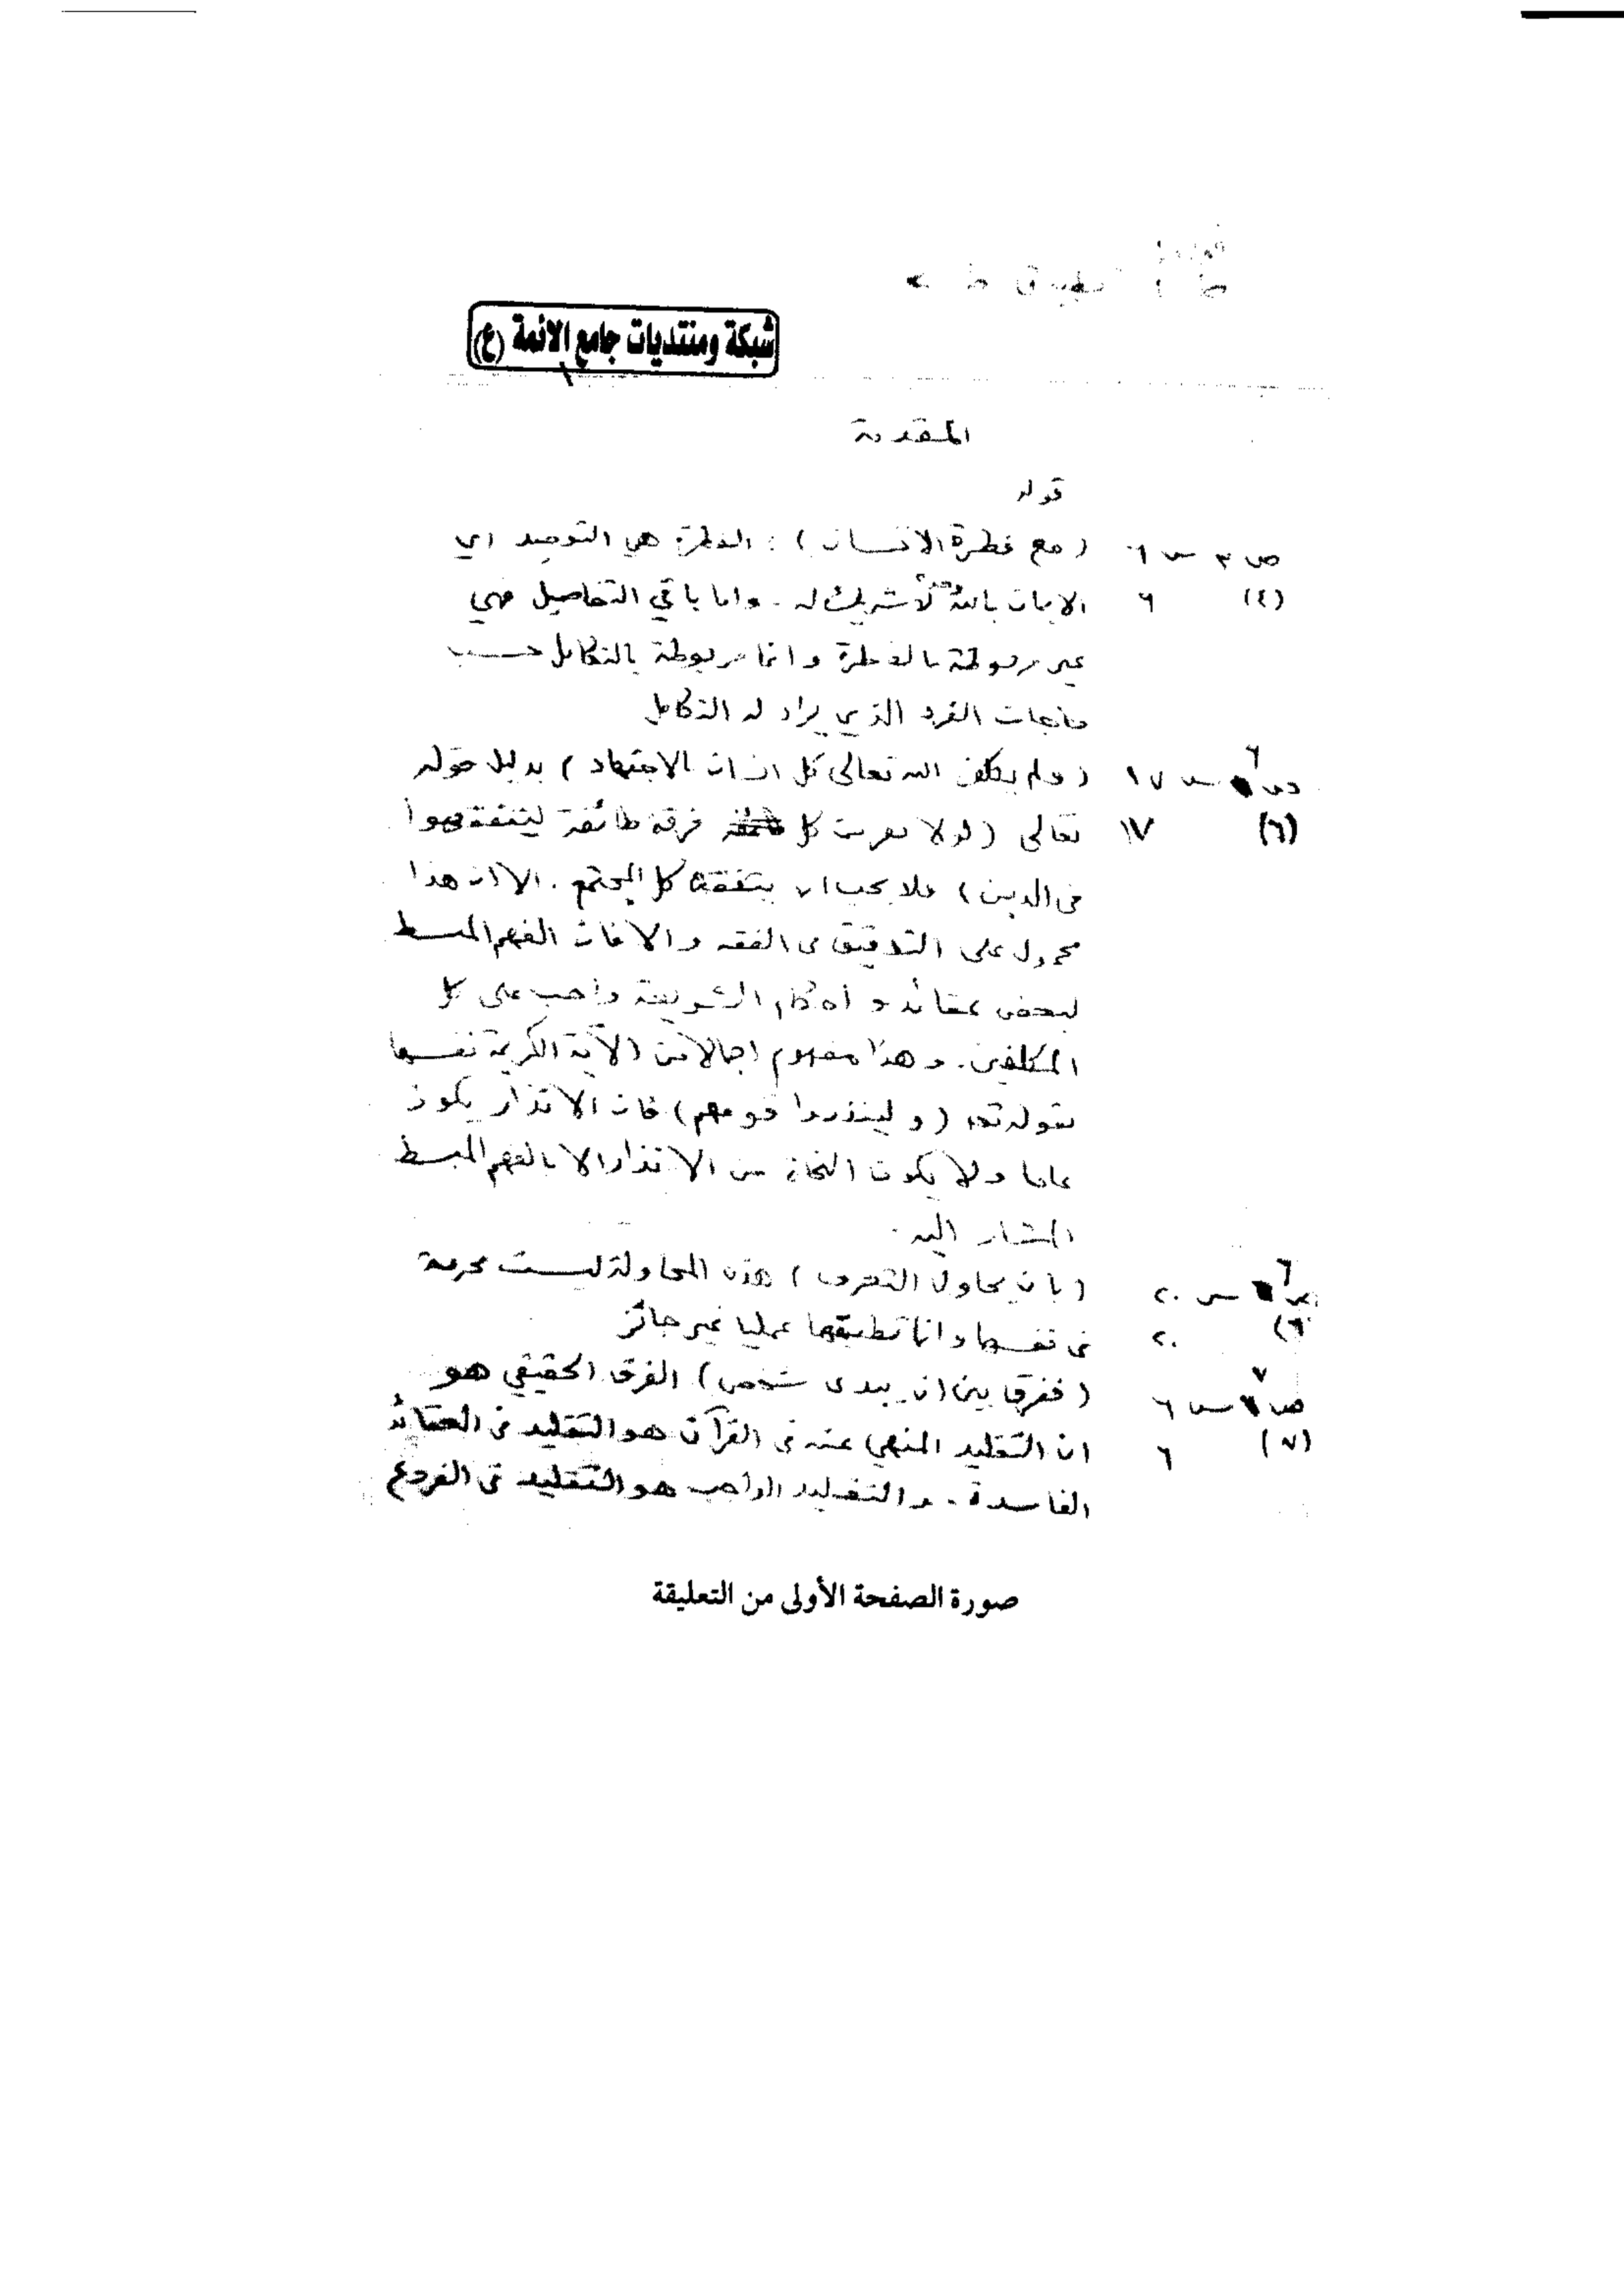 شبكة ومنتديات جامع الائمة (ع)
١
المقدمة
قوله
ص ٣ س ٦ (مع فطرة الانسان) : الفطرة هي التوحيد اي
(٤) ٦ الايمان بالله وحده لا شريك له . واما باقي التفاصيل فهي
غير مربوطة بالفطرة وانما مربوطة بالتكامل حسب
حاجات الفرد الذي يراد له التكامل
ص ٦ س ١٧ (ولم يكلف الله تعالى كل انسان بالاجتهاد) بدليل قوله
(٦) ١٧ تعالى (لولا نفر من كل فرقة طائفة ليتفقهوا
في الدين) فلا يجب ان يتفقه كل المجتمع . الا ان هذا
محمول على التدقيق في الفقه والا فان الفهم المبسط
لبعض عقائد و أحكام الشريعة واجب على كل
المكلفين . وهذا مفهوم اجمالا من الآية الكريمة نفسها
بقوله تعـ (و لينذروا قومهم) فان الانذار يكون
عاما ولا يكون النجاة من الانذار الا بالفهم المبسط
المشار اليه .
ص ٦ س ٢٠ (بان يحاول التعرف) هذه المحاولة ليست محرمة
(٦) ٢٠ في نفسها وانما تطبيقها عمليا غير جائز
ص ٧ س ٦ (ففرق بين ان يبدى شخص) الفرق الحقيقي هو
(٧) ٦ ان التقليد المنهي عنه في القرآن هو التقليد في العقائد
الفاسدة . والتقليد الواجب هو التقليد في الفروع
صورة الصفحة الأولى من التعليقة